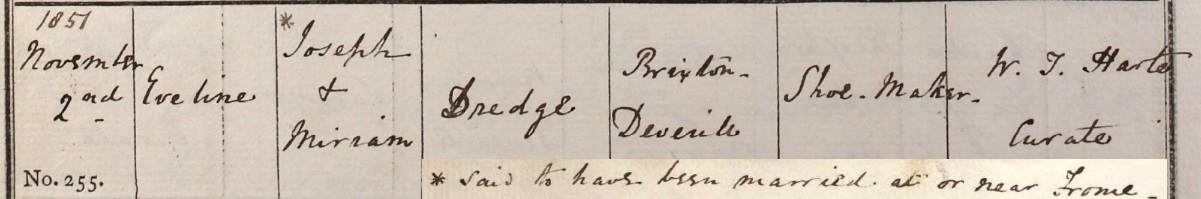 1851
November
2nd
Eveline
*
Joseph
&
Miriam
Dredge
Brixton-
Deverill
Shoe-Maker-
W. T. Harte
Curate
No. 255.
* Said to have been married at or near Frome-